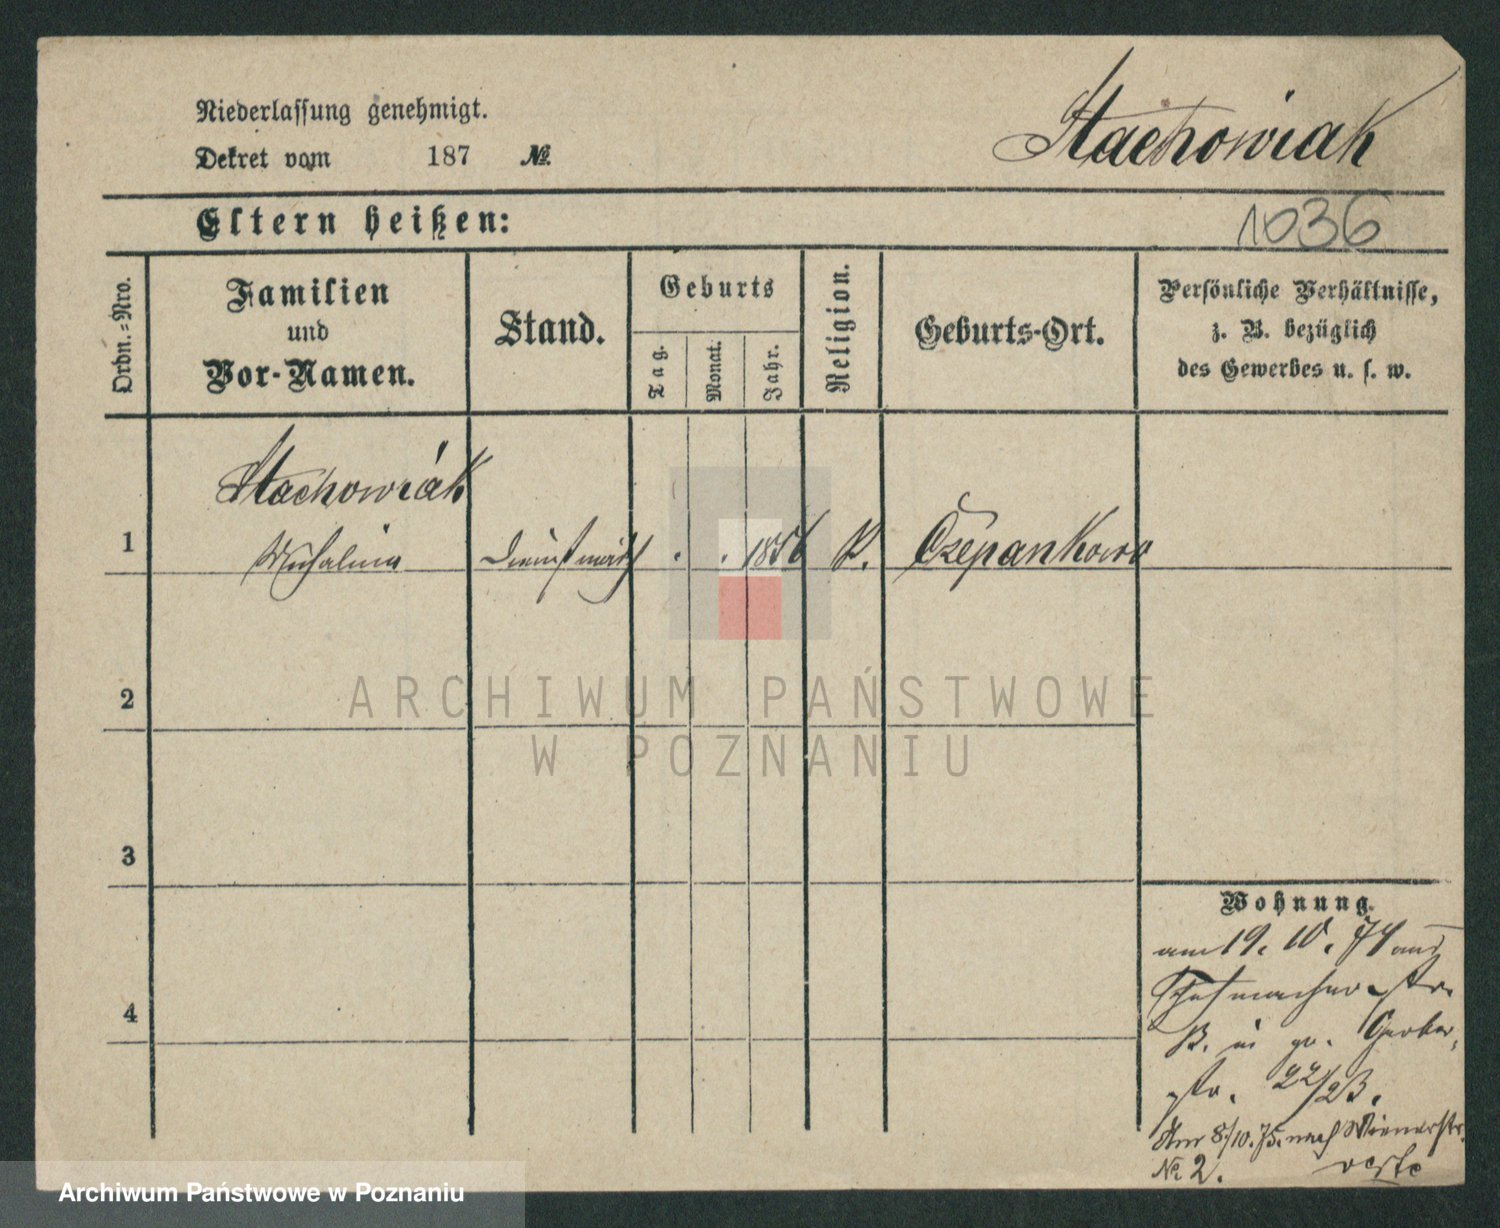 Niederlassung genehmigt.
Dekret vom 187 №
Stachowiak
1036
Eltern heißen:
Ordn.-Nro.
Familien
und
Vor-Namen.
Stand.
Geburts
Tag.
Monat.
Jahr.
Religion.
Geburts-Ort.
Persönliche Verhältnisse,
z. B. bezüglich
des Gewerbes u. s. w.
Stachowiak
1 Michalina Dienstmädch . . 1856 k. Czepankowo
2
3
4
Wohnung.
am 19. 10. 74 aus
Schuhmacher-Str.
13. in gr. Gerber-
str. 22/23.
Am 8/10. 75. nach Wienerstr.
№ 2. verte
ARCHIWUM PAŃSTWOWE
W POZNANIU
Archiwum Państwowe w Poznaniu